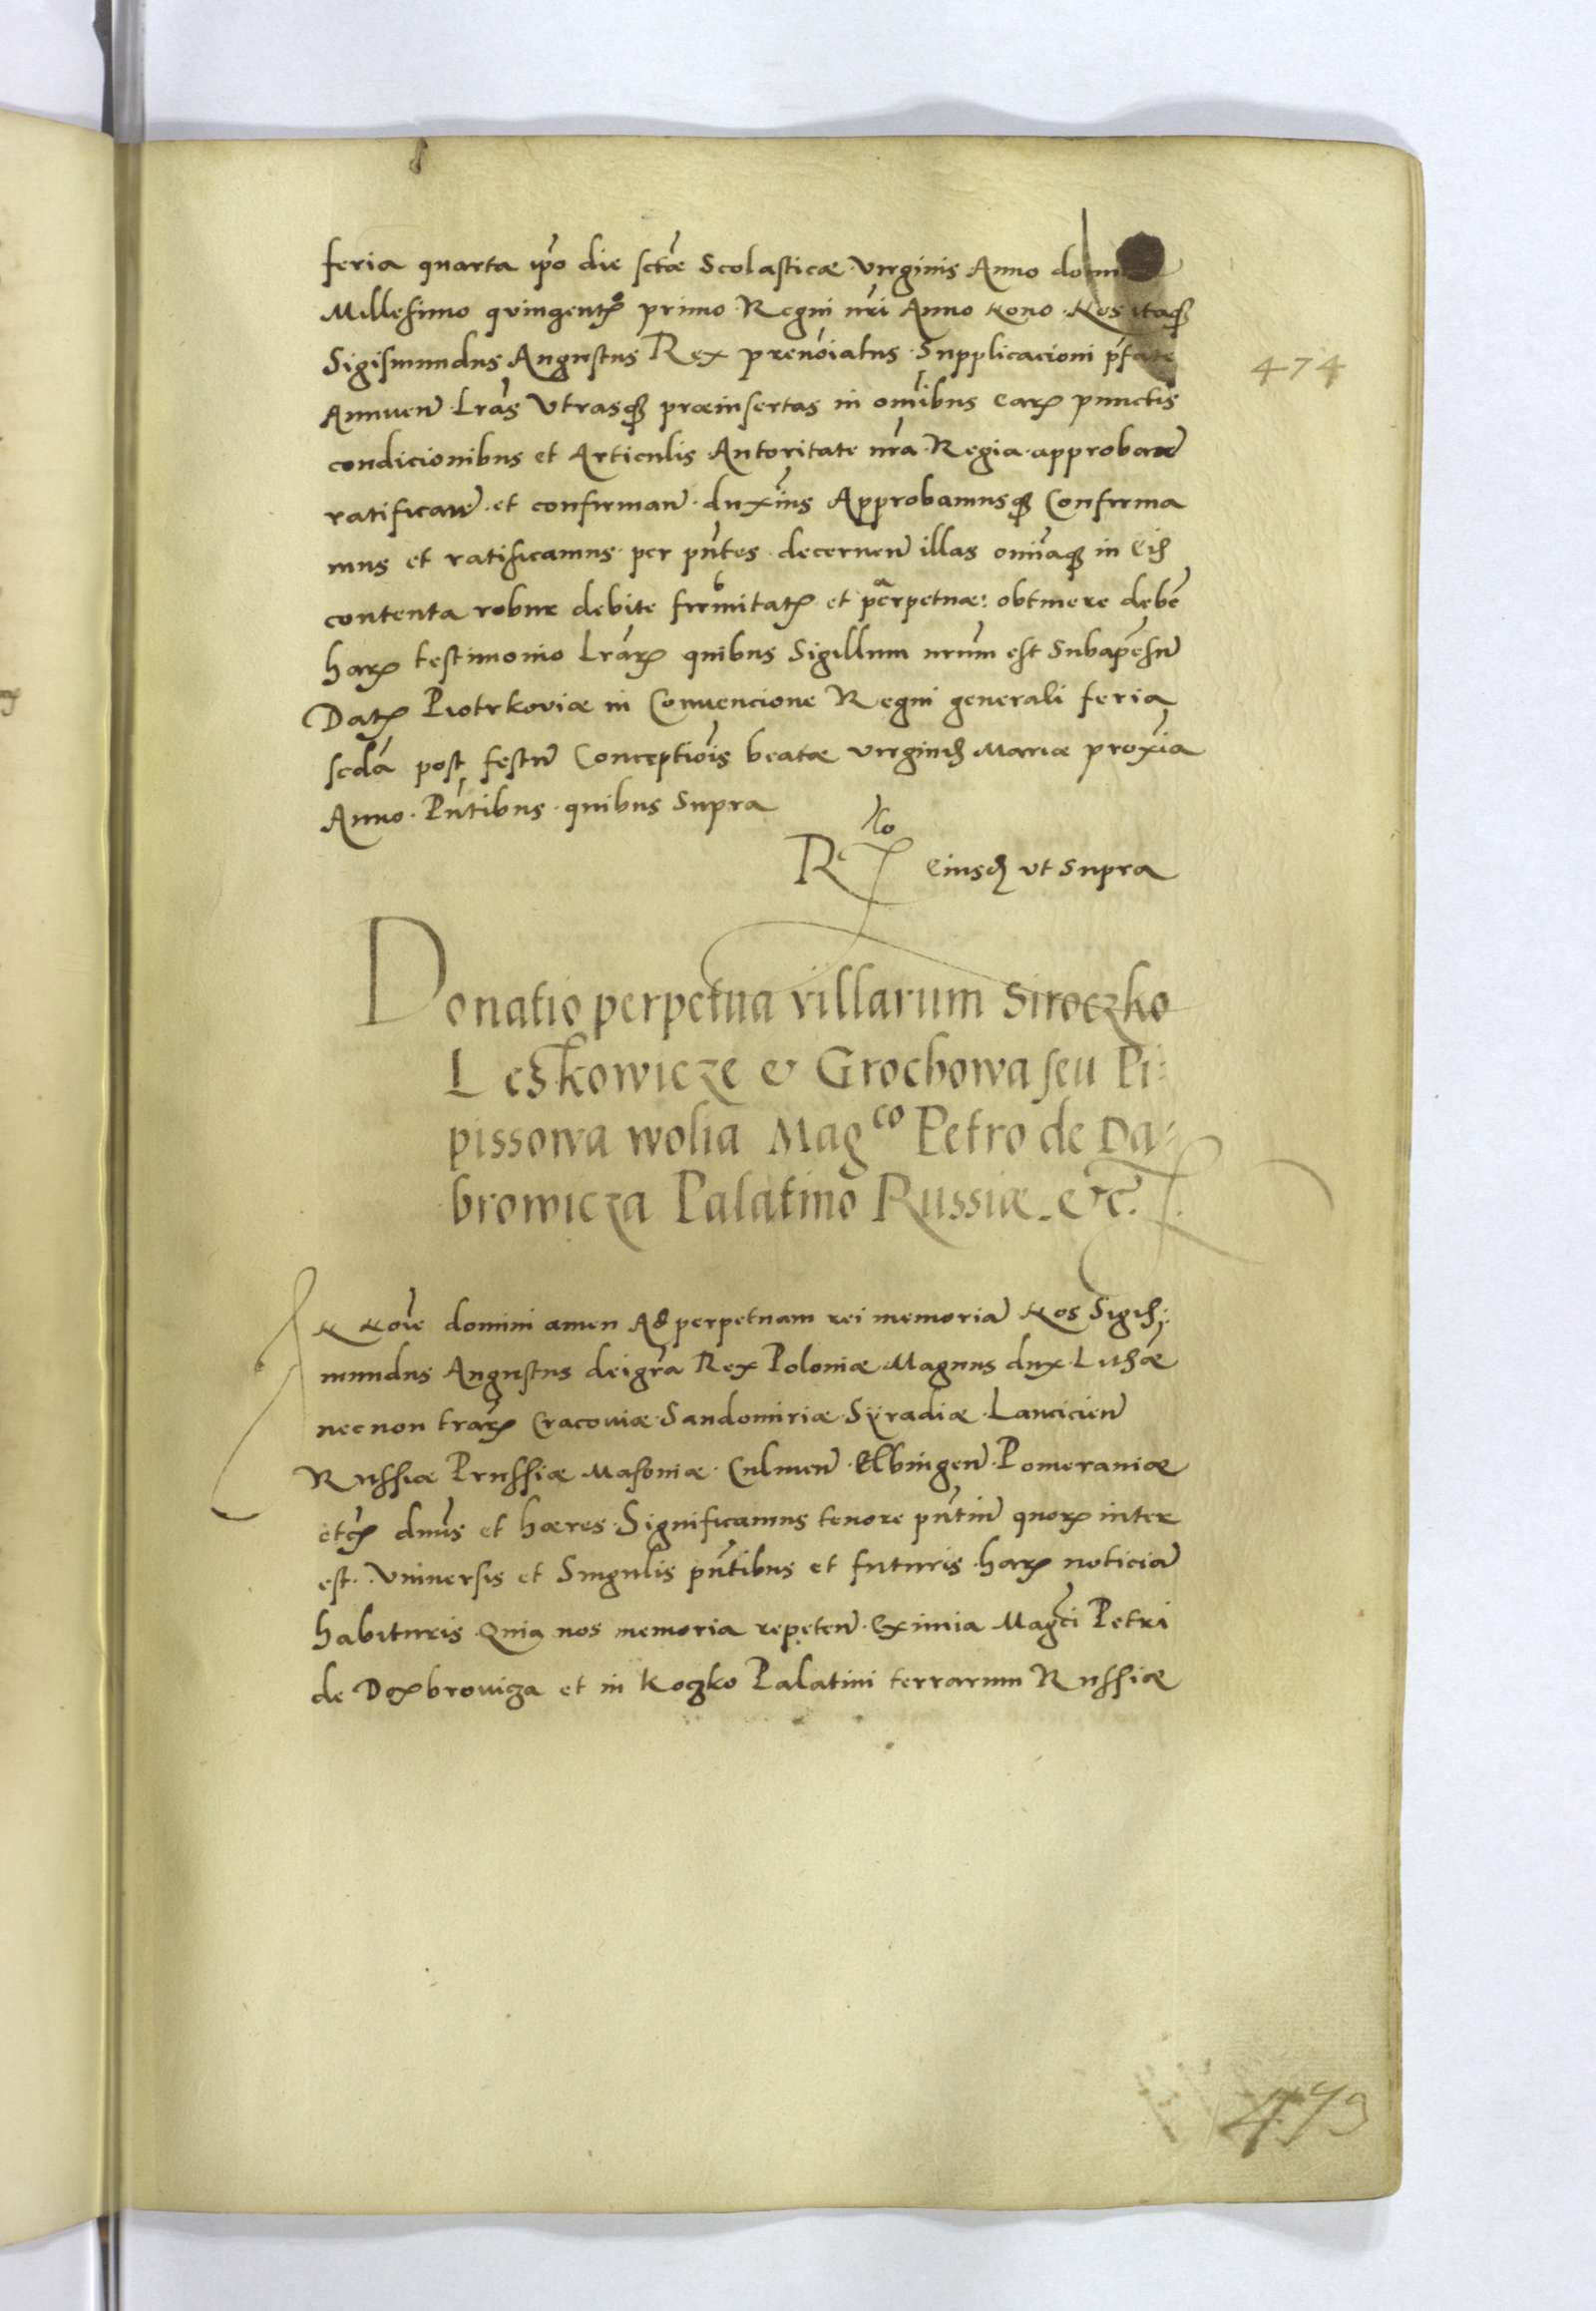 feria quarta ip̄o die sctǣ Scolasticæ Virginis Anno domi
Millesimo quingentꝭ primo Regni nr̄i Anno Nono Nos itaqꝫ
Sigismundus Augustus Rex prenōiatus Supplicacioni pfate
474
Annuen̄ Lrās Vtrasqꝫ præinsertas in omībus earꝝ punctis
condicionibus et Articulis Autoritate nr̄a Regia approban̄
ratifican̄ et confirman̄ duxim̄s Approbamusqꝫ Confirma
mus et ratificamus per pn̄tes decernen̄ illas omīaqꝫ in Eisꝫ
contenta robur debite firmitatꝭ et perpetuæ: obtinere debē
harꝝ testimonio Lrārꝝ quibus Sigillum nrūm est Subapēsū
Datꝝ Piotrkoviæ in Convencione Regni generali feria
scdā post festū Conceptiōis beatæ virginis Mariæ proxīa
Anno Pn̄tibus quibus Supra
Rᶜ Eiusdꝫ vt Supra
Donatio perpetua villarum Siroczko
Leskowicze & Grochowa seu Pi:
pissowa wolia Magᶜᵒ Petro de Da=
browicza Palatino Russiæ. &c̄.
N Noīe domini amen Ad perpetuam rei memoriā Nos Sigis:
mundus Augustus dei grā Rex Poloniæ Magnus dux Lithǣ
necnon trārꝝ Cracoviæ Sandomiriæ Sÿradiæ Lancicien̄
Russiæ Prussiæ Masoviæ Culmen̄ Elbingen̄ Pomeraniæ
etcꝝ dn̄us et hæres Significamus tenore pn̄tiū quorꝝ inter
est Vniuersis et Singulis pn̄tibus et futuris harꝝ noticiā
habituris Quia nos memoria repeten̄ Eximia Magc̄i Petri
de Dąbroviça et in Koczko Palatini terrarum Russiæ
479